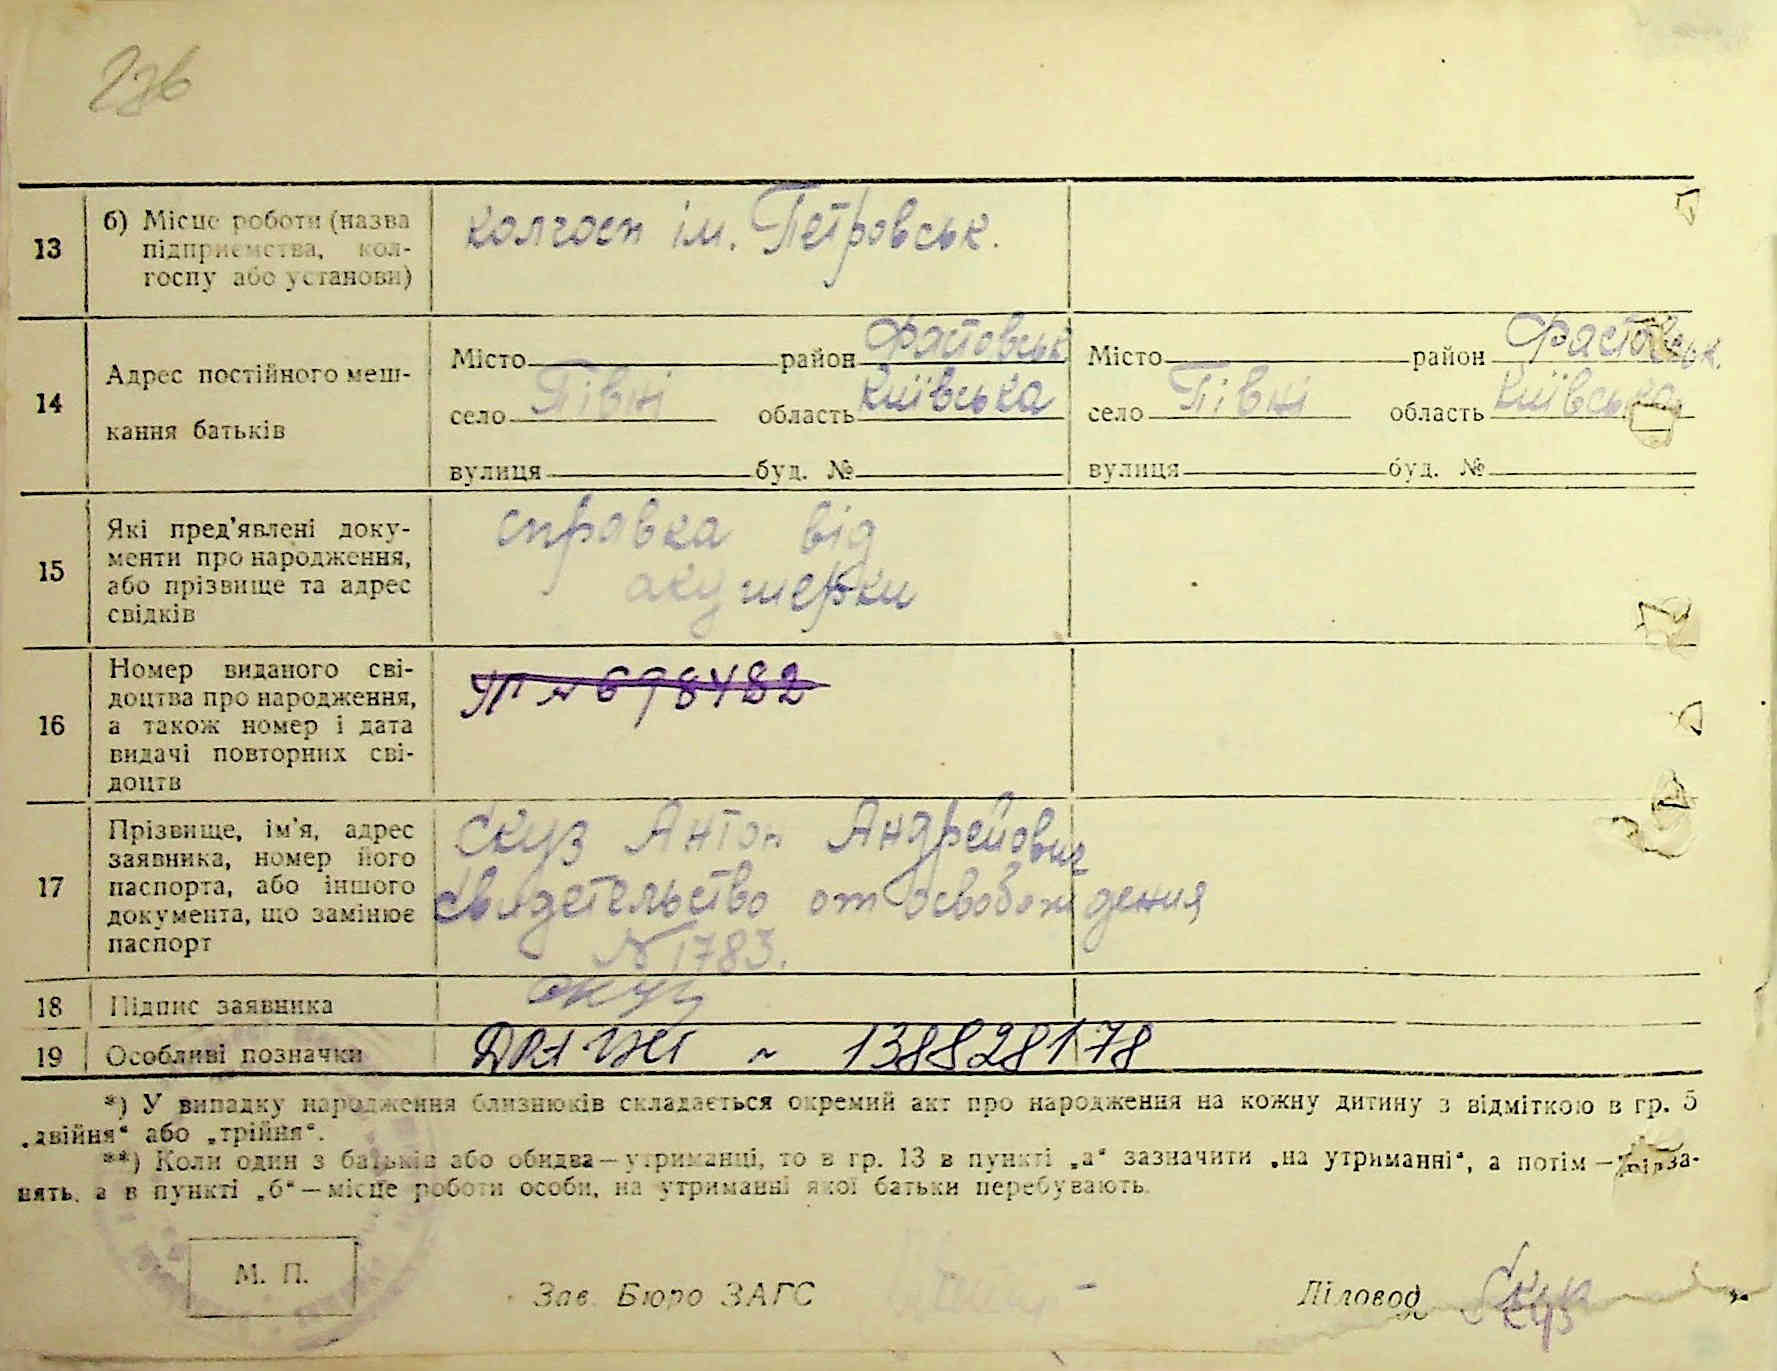 236
13
б) Місце роботи (назва
підприємства, кол-
госпу або установи)
колгосп ім. Петровськ.
14
Адрес постійного меш-
кання батьків
Місто район Фастовськ
село Півні область Київська
вулиця буд. №
Місто район Фастовськ.
село Півні область Київська
вулиця буд. №
15
Які пред'явлені доку-
менти про народження,
або прізвище та адрес
свідків
справка від
акушерки
16
Номер виданого сві-
доцтва про народження,
а також номер і дата
видачі повторних сві-
доцтв
№ 698482
17
Прізвище, ім'я, адрес
заявника, номер його
паспорта, або іншого
документа, що замінює
паспорт
Скуз Антон Андрейович
свидетельство от освобождения
№ 1783.
18
Підпис заявника
Скуз
19
Особливі позначки
138828178
*) У випадку народження близнюків складається окремий акт про народження на кожну дитину з відміткою в гр. 5
„двійня“ або „трійня“.
**) Коли один з батьків або обидва—утриманці, то в гр. 13 в пункті „а“ зазначити „на утриманні“, а потім—
нять, а в пункті „б“—місце роботи особи, на утриманні якої батьки перебувають.
М. П.
Зав. Бюро ЗАГС
Діловод Скуз